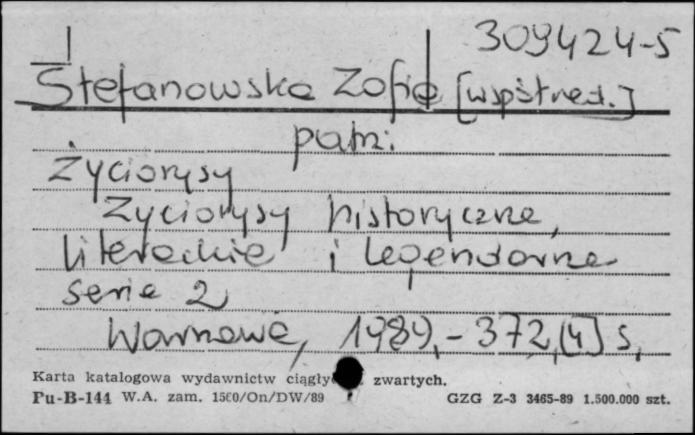 309424-5
Stefanowska Zofia [współred.]
patrz:
Życiorysy
Życiorysy historyczne,
literackie i legendarne
seria 2
Warszawa, 1989,- 372,[4] s,
Karta katalogowa wydawnictw zwartych.
Pu-B-144 W.A. zam. 1560/On/DW/89 GZG Z-3 3465-89 1.500.000 szt.